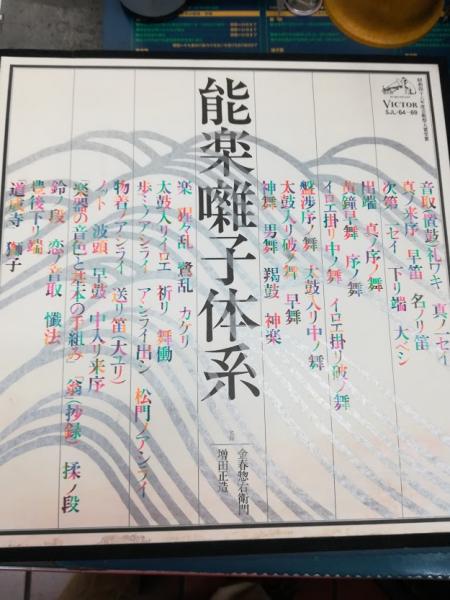 VICTOR
SJL-64~69
能楽囃子体系
監修
金春惣右衛門
増田正造
音取置鼓 礼ワキ 真ノ一セイ
真ノ来序 早笛 名ノリ笛
次第 一セイ 下リ端 大ベシ
出端 真ノ序ノ舞
黄鐘早舞 序ノ舞
イロエ掛リ中ノ舞 イロエ掛リ破ノ舞
盤渉序ノ舞 太鼓入リ中ノ舞
太鼓入リ破ノ舞 早舞
神舞 男舞 羯鼓 神楽
楽 猩々乱 鷺乱 カケリ
太鼓入リイロエ 祈リ 舞働
歩ミノアシライ アシライ出シ 松門ノアシライ
物着ノアシライ 送リ笛(大エリ)
ノット 波頭 早鼓 中入リ来序
「楽器の音色と基本の手組み」「翁」(抄録) 揉ノ段
鈴ノ段 恋ノ音取 懺法
豊後下リ端
「道成寺」 獅子